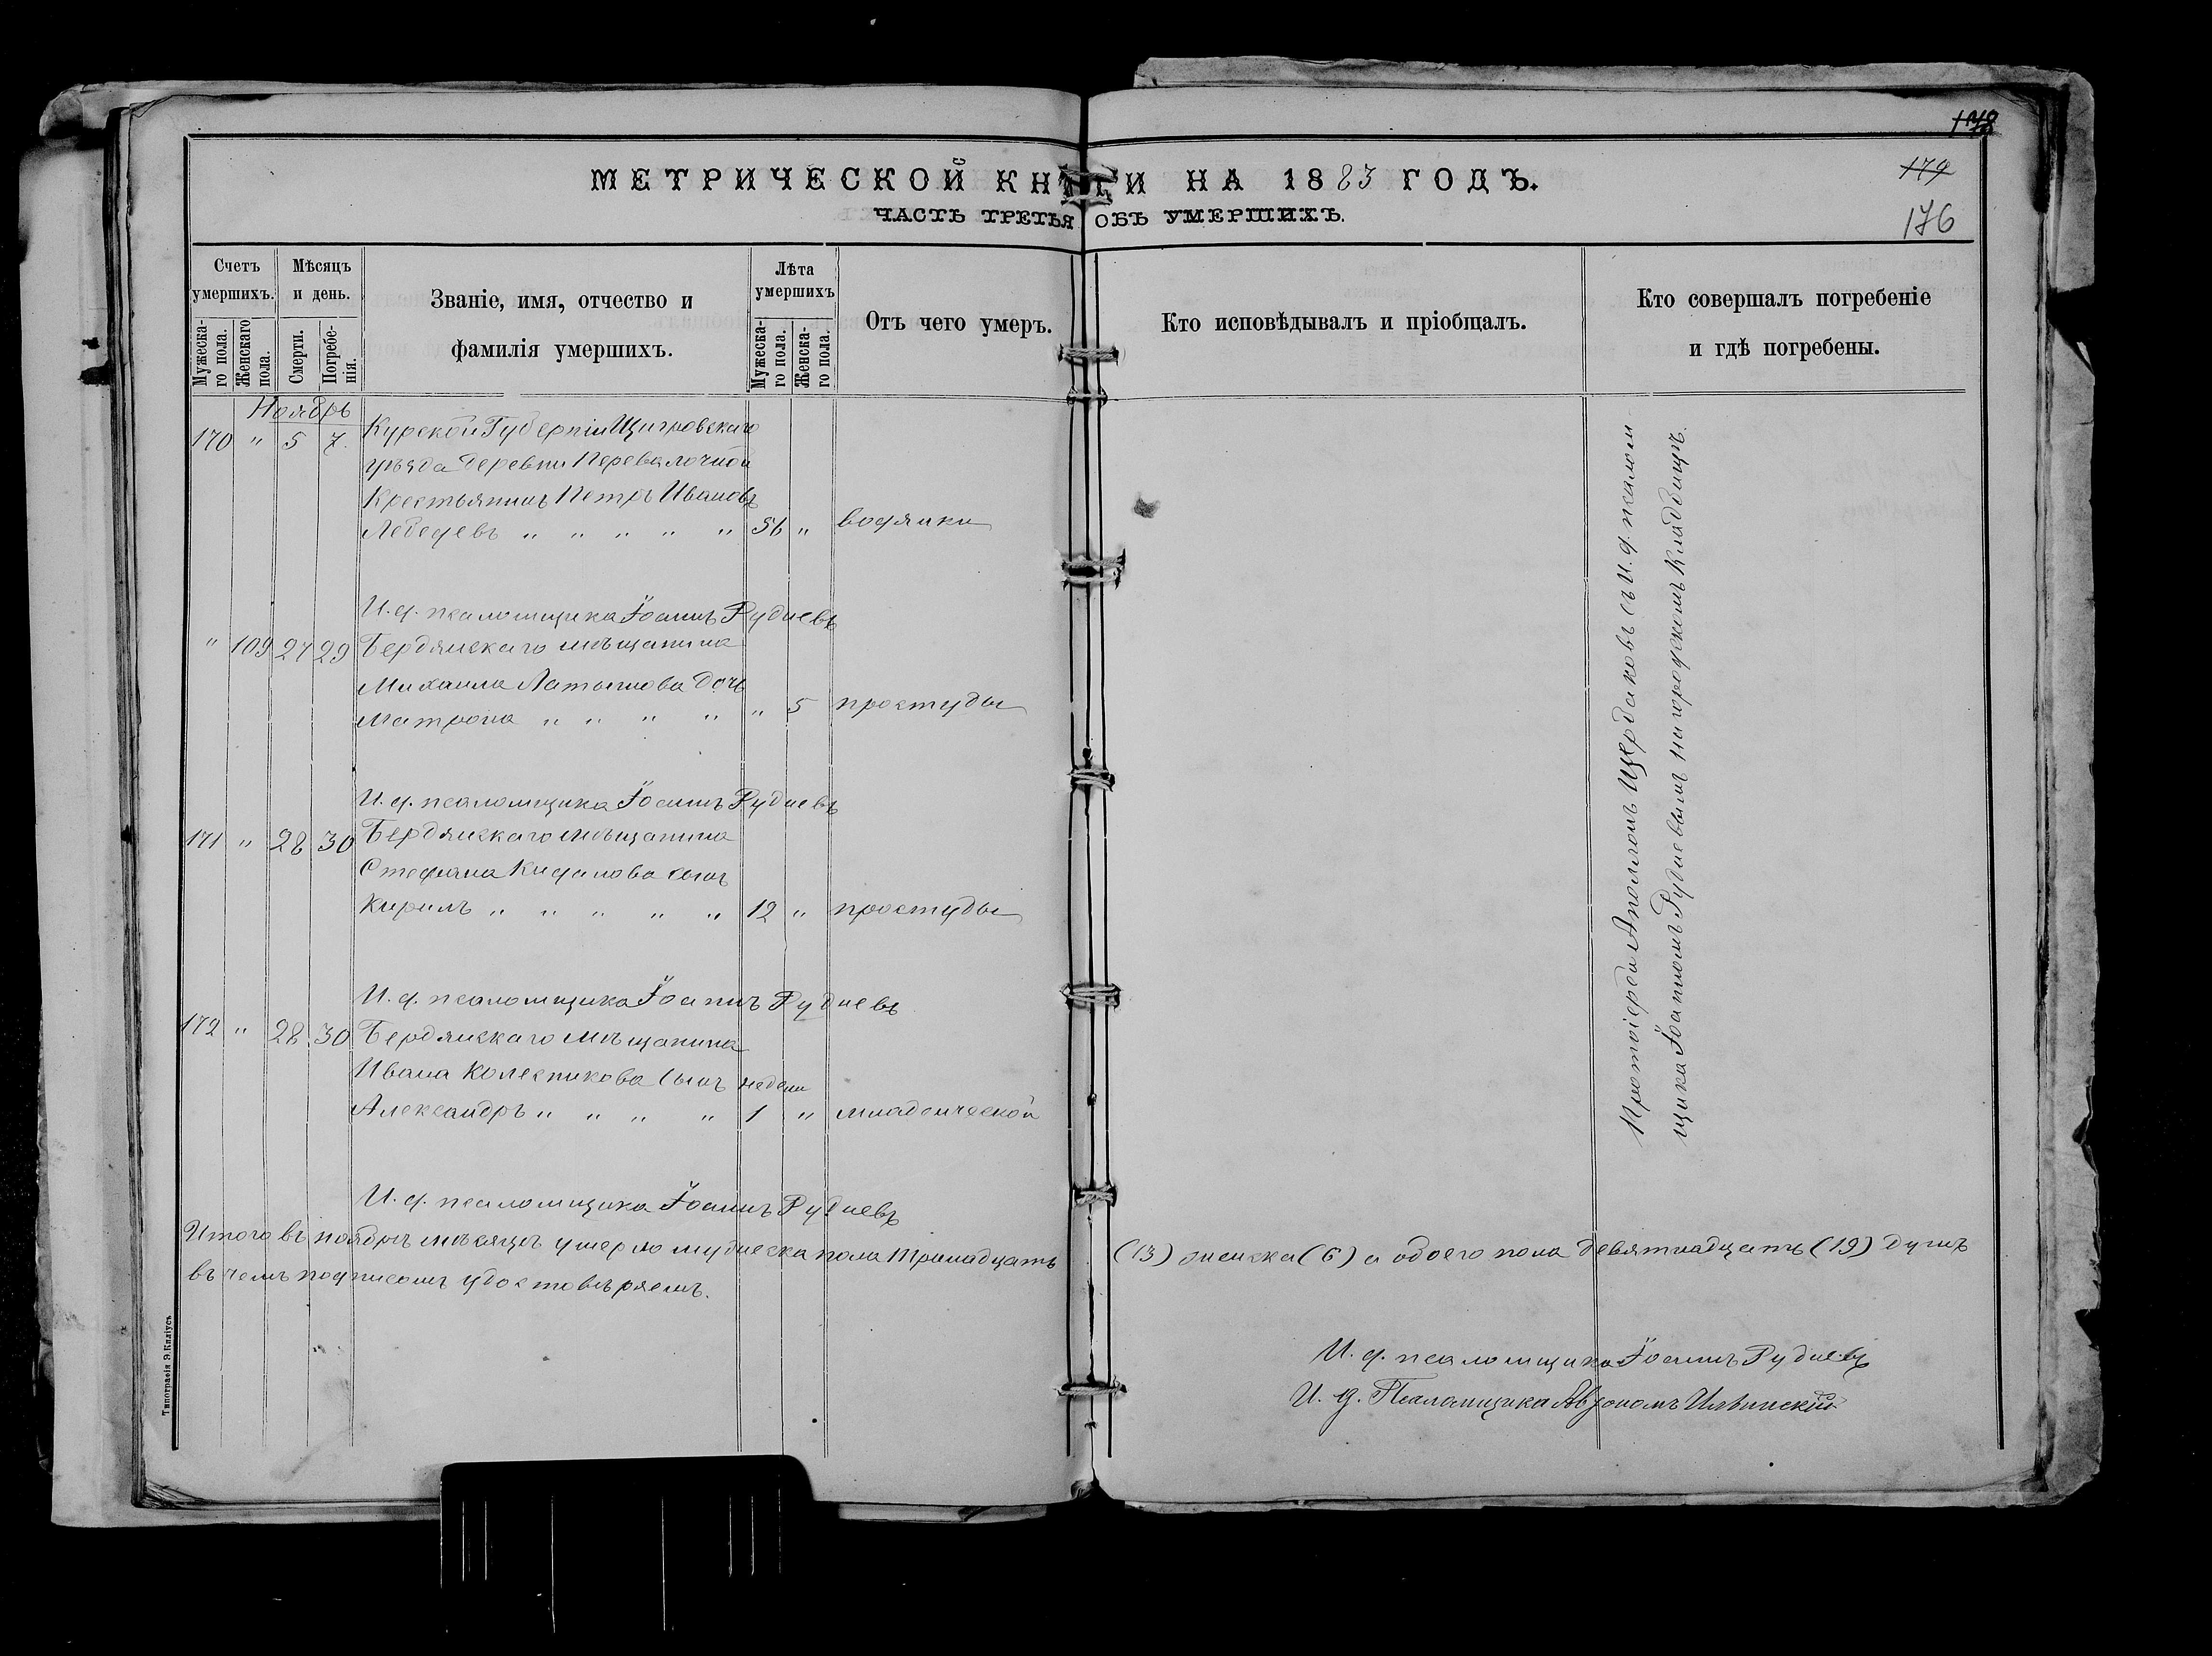 178
179
176
МЕТРИЧЕСКОЙ КНИГИ НА 1883 ГОДЪ.
ЧАСТЬ ТРЕТЬЯ ОБЪ УМЕРШИХЪ.
Счетъ умершихъ.
Мужеска-го пола.
Женскаго пола.
Мѣсяцъ и день.
Смерти.
Погребе-нія.
Званіе, имя, отчество и
фамилія умершихъ.
Лѣта умершихъ
Мужеска-го пола.
Женска-го пола.
Отъ чего умеръ.
Кто исповѣдывалъ и пріобщалъ.
Кто совершалъ погребеніе
и гдѣ погребены.
Ноябрь
170 " 5 7. Курской Губерніи Щигровскаго
уѣзда деревни Перевалочной
Крестьянинъ Петръ Ивановъ
Лебедевъ " " " " " 56 " водянки
И. д. псаломщика Іоаннъ Рудневъ
" 109 27 29 Бердянскаго мѣщанина
Михаила Латышова дочь
Матрона " " " " " 5 простуды
И. д. псаломщика Іоаннъ Рудневъ
171 " 28 30 Бердянскаго мѣщанина
Стефана Кидалова сынъ
Кирилъ " " " " " 12 " простуды
И. д. псаломщика Іоаннъ Рудневъ
172 " 28 30 Бердянскаго мѣщанина
Ивана Колесникова сынъ недели
Александръ " " " " 1 " младенческой
И. д. псаломщика Іоаннъ Рудневъ
Протоіерей Аполлонъ Щербаковъ съ И. д. псалом-
щика Іоанномъ Рудневымъ на городскомъ кладбищѣ.
Итого въ ноябрѣ мѣсяцѣ умерло мужеска пола тринадцать (13) женска (6) а обоего пола девятнадцать (19) душъ
въ чемъ подписомъ удостовѣряемъ.
И. д. псаломщика Іоаннъ Рудневъ
И. д. Псаломщика Автономъ Ильинскій
Типографія Э. Киліусъ